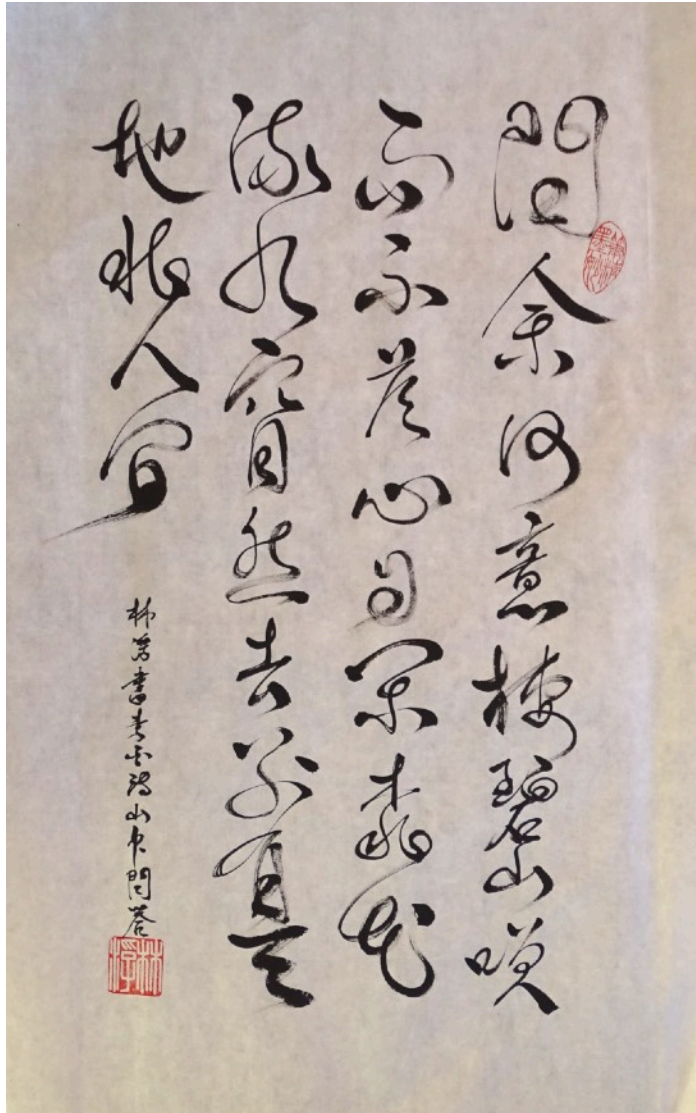 問余何意棲碧山咲
而不答心自閑桃花
流水窅然去別有天
地非人間
林書李白詩山中問答
林